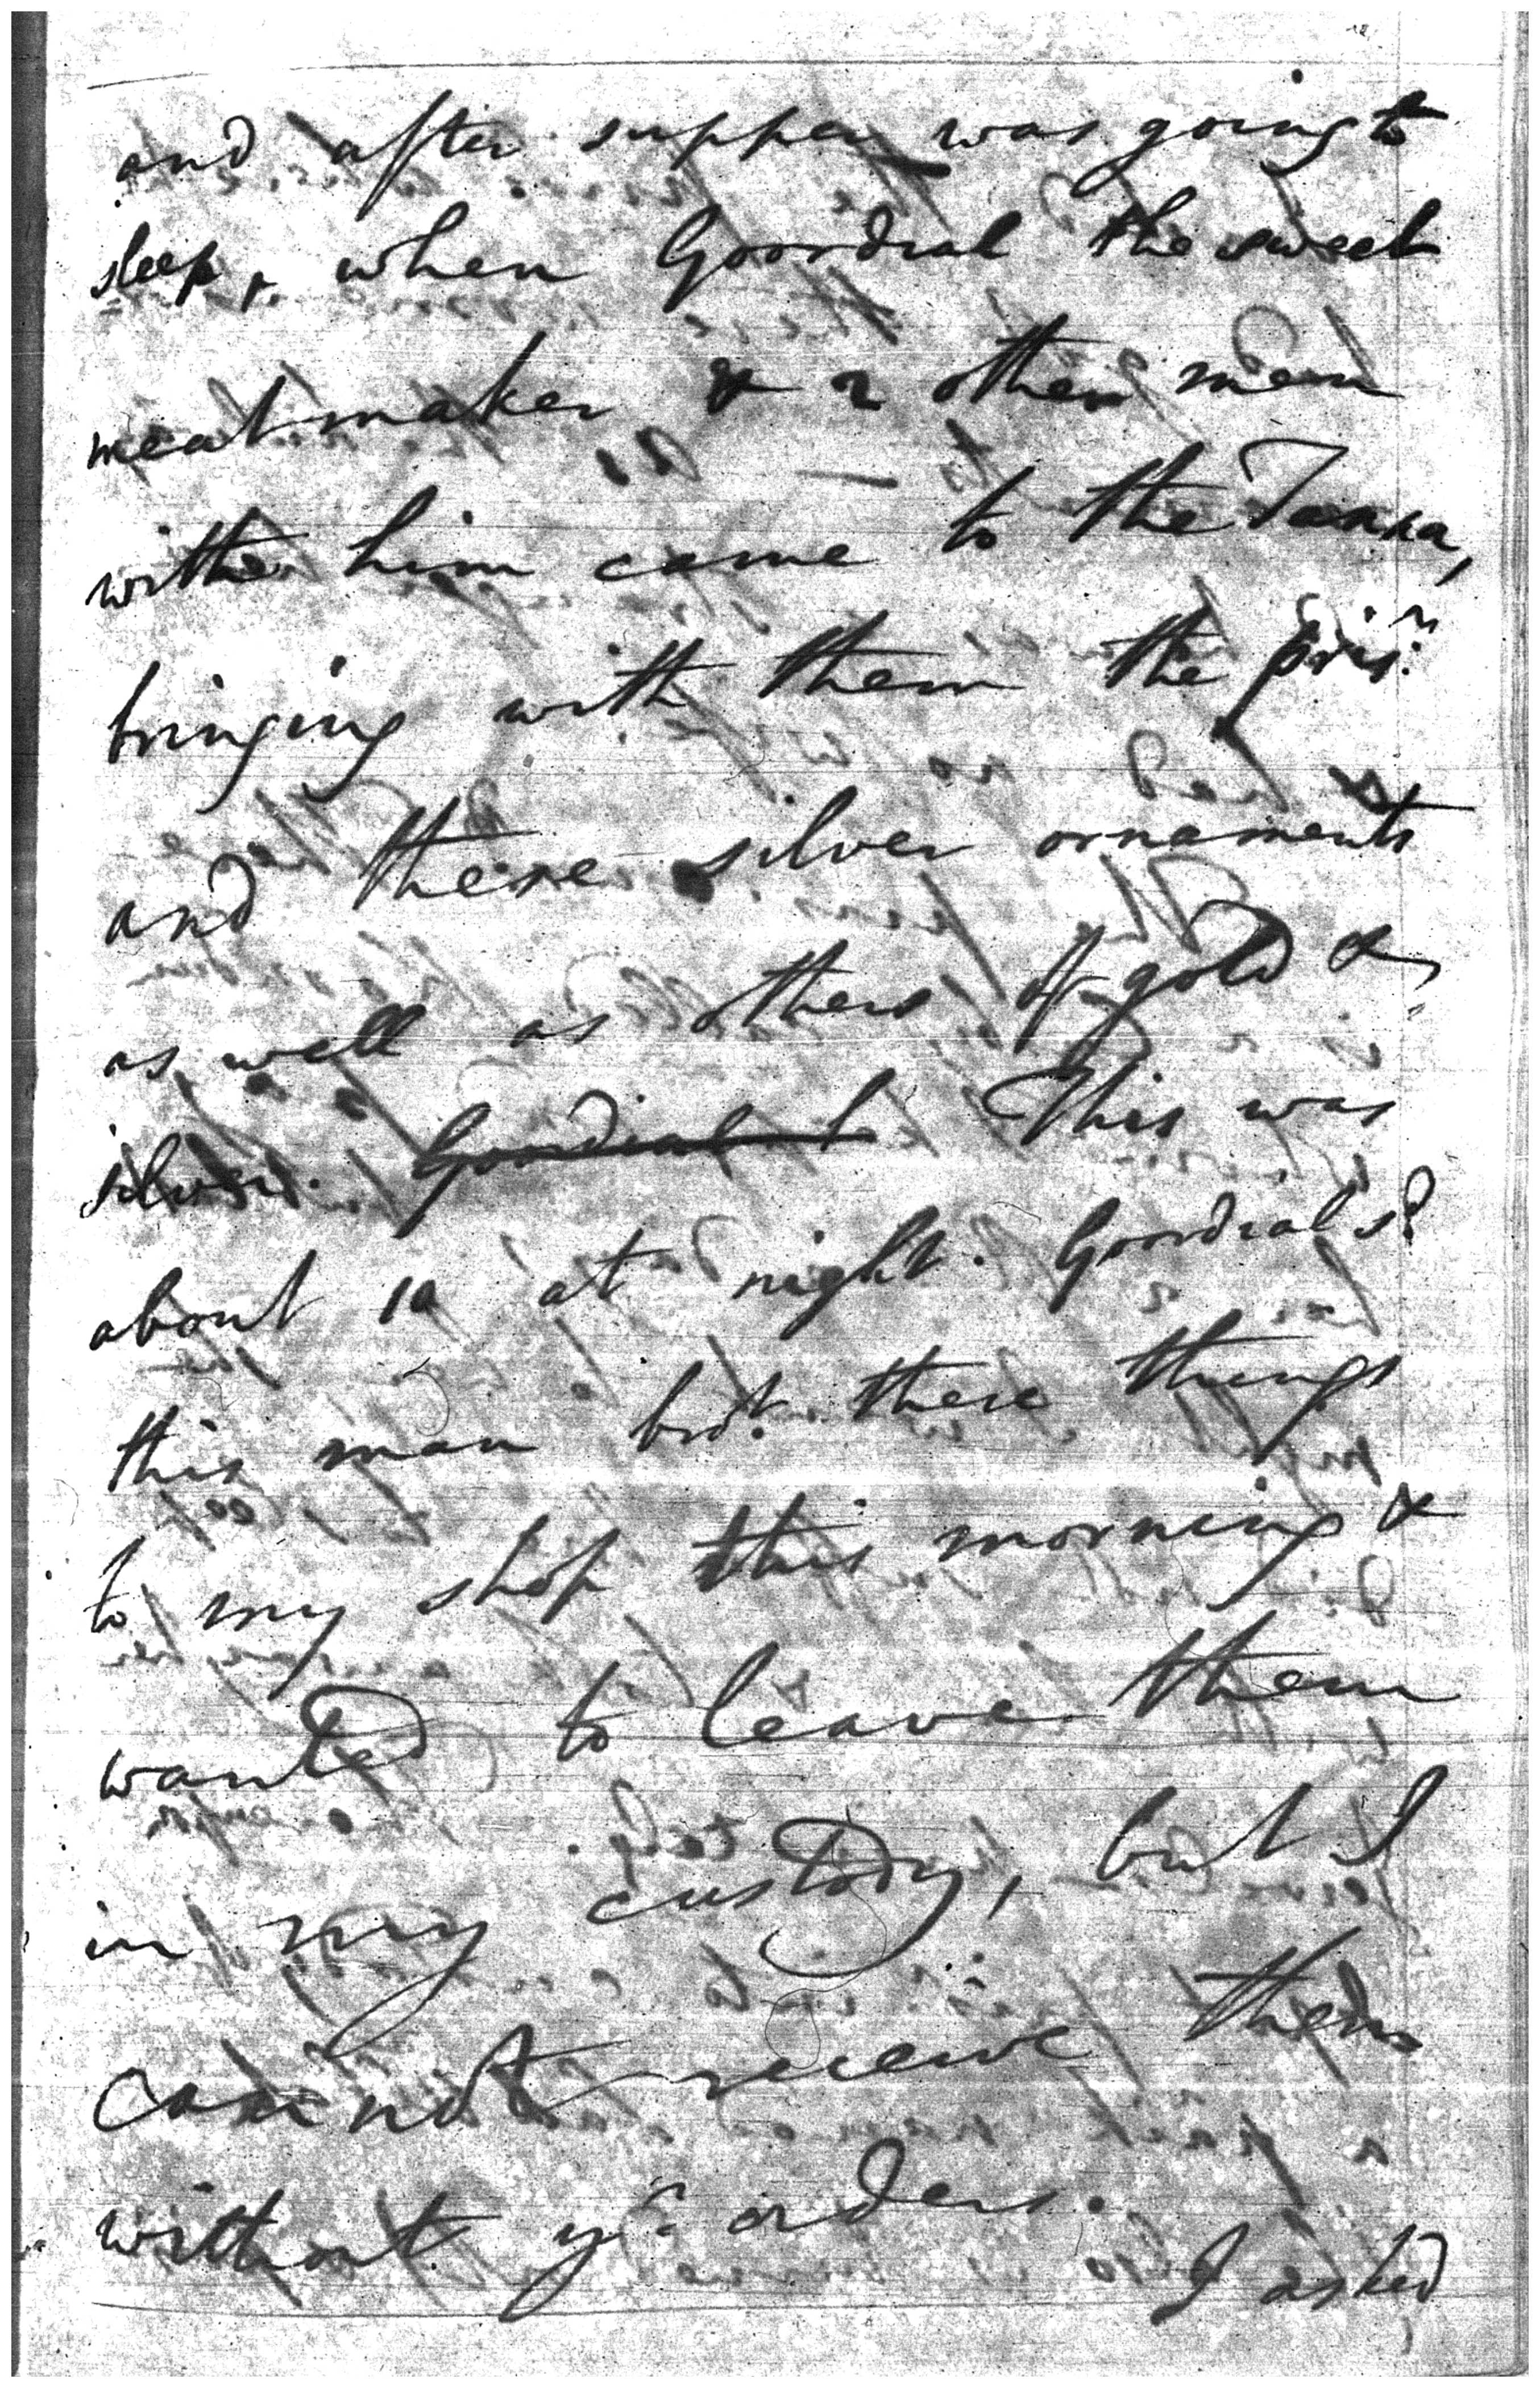 and after supper was going to
sleep, when Goordial the sweet
meat maker & 2 other men
with him came to the Tanna,
bringing with them the pris.r
and these silver ornaments
as well as others of gold &
silver. Goordial t This was
about 10 at night. Goordial sd.
this man brot. these things
to my shop this morning &
wanted to leave them
in my custody, but I
can not receive them
without yr. orders.
I asked